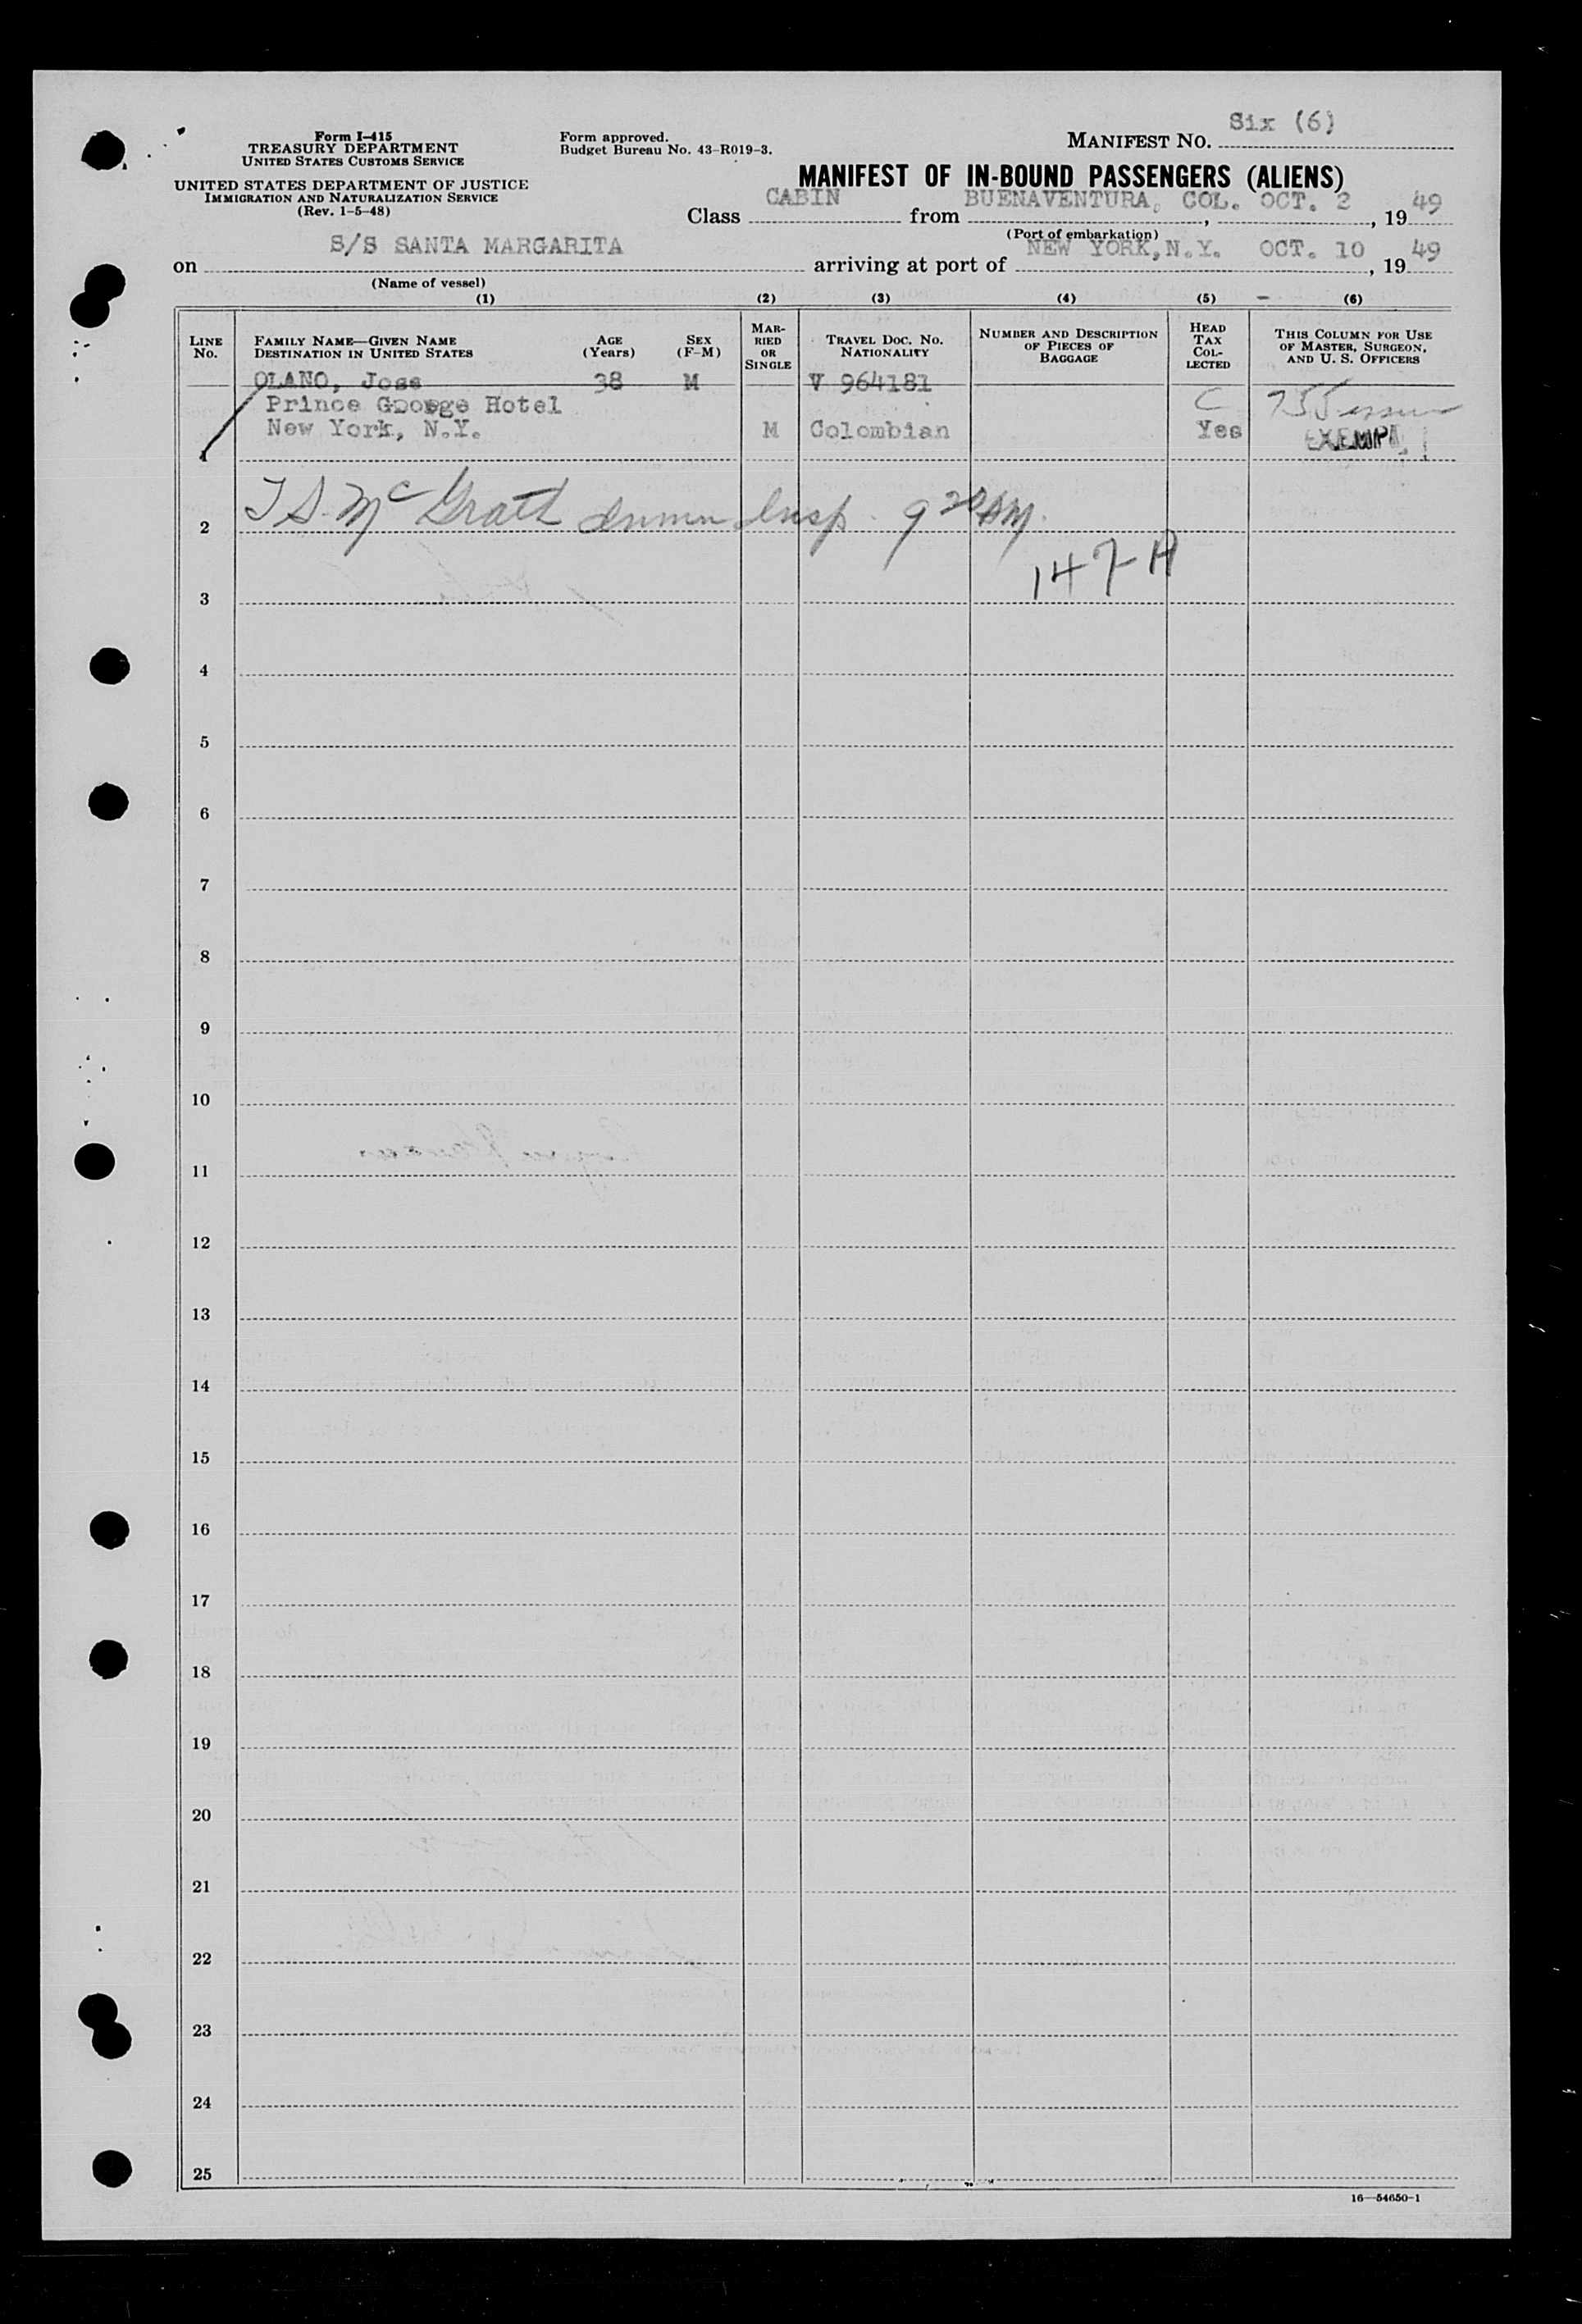 Form I-415
TREASURY DEPARTMENT
UNITED STATES CUSTOMS SERVICE
UNITED STATES DEPARTMENT OF JUSTICE
IMMIGRATION AND NATURALIZATION SERVICE
(Rev. 1-5-48)
Form approved.
Budget Bureau No. 43-R019-3.
MANIFEST NO. Six (6)
MANIFEST OF IN-BOUND PASSENGERS (ALIENS)
Class CABIN from BUENAVENTURA, COL. OCT. 2, 1949
(Port of embarkation)
on S/S SANTA MARGARITA arriving at port of NEW YORK, N.Y. OCT. 10, 1949
(Name of vessel)
(1) (2) (3) (4) (5) (6)
LINE No.
FAMILY NAME—GIVEN NAME
DESTINATION IN UNITED STATES
AGE (Years)
SEX (F-M)
MARRIED OR SINGLE
TRAVEL DOC. NO.
NATIONALITY
NUMBER AND DESCRIPTION OF PIECES OF BAGGAGE
HEAD TAX COLLECTED
THIS COLUMN FOR USE OF MASTER, SURGEON, AND U. S. OFFICERS
OLANO, Jose 38 M V 964181
Prince George Hotel C
New York, N.Y. M Colombian Yes EXEMPT
1
T S. McGrath Immn Insp. 9 20 AM.
2
147 A
3
4
5
6
7
8
9
10
11
12
13
14
15
16
17
18
19
20
21
22
23
24
25
16—54650-1